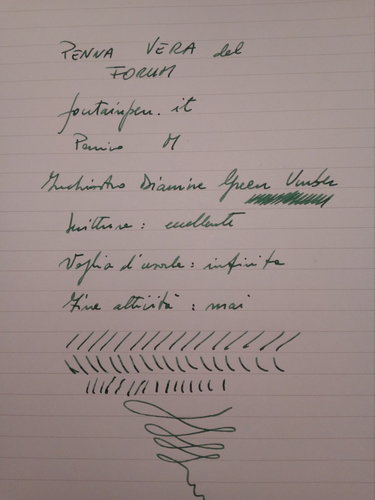 PENNA VERA del
FORUM
fountainpen.it
Pennino M
Inchiostro Diamine Green Umber
Scrittura: eccellente
Voglia d'usarla: infinita
Fine attività: mai